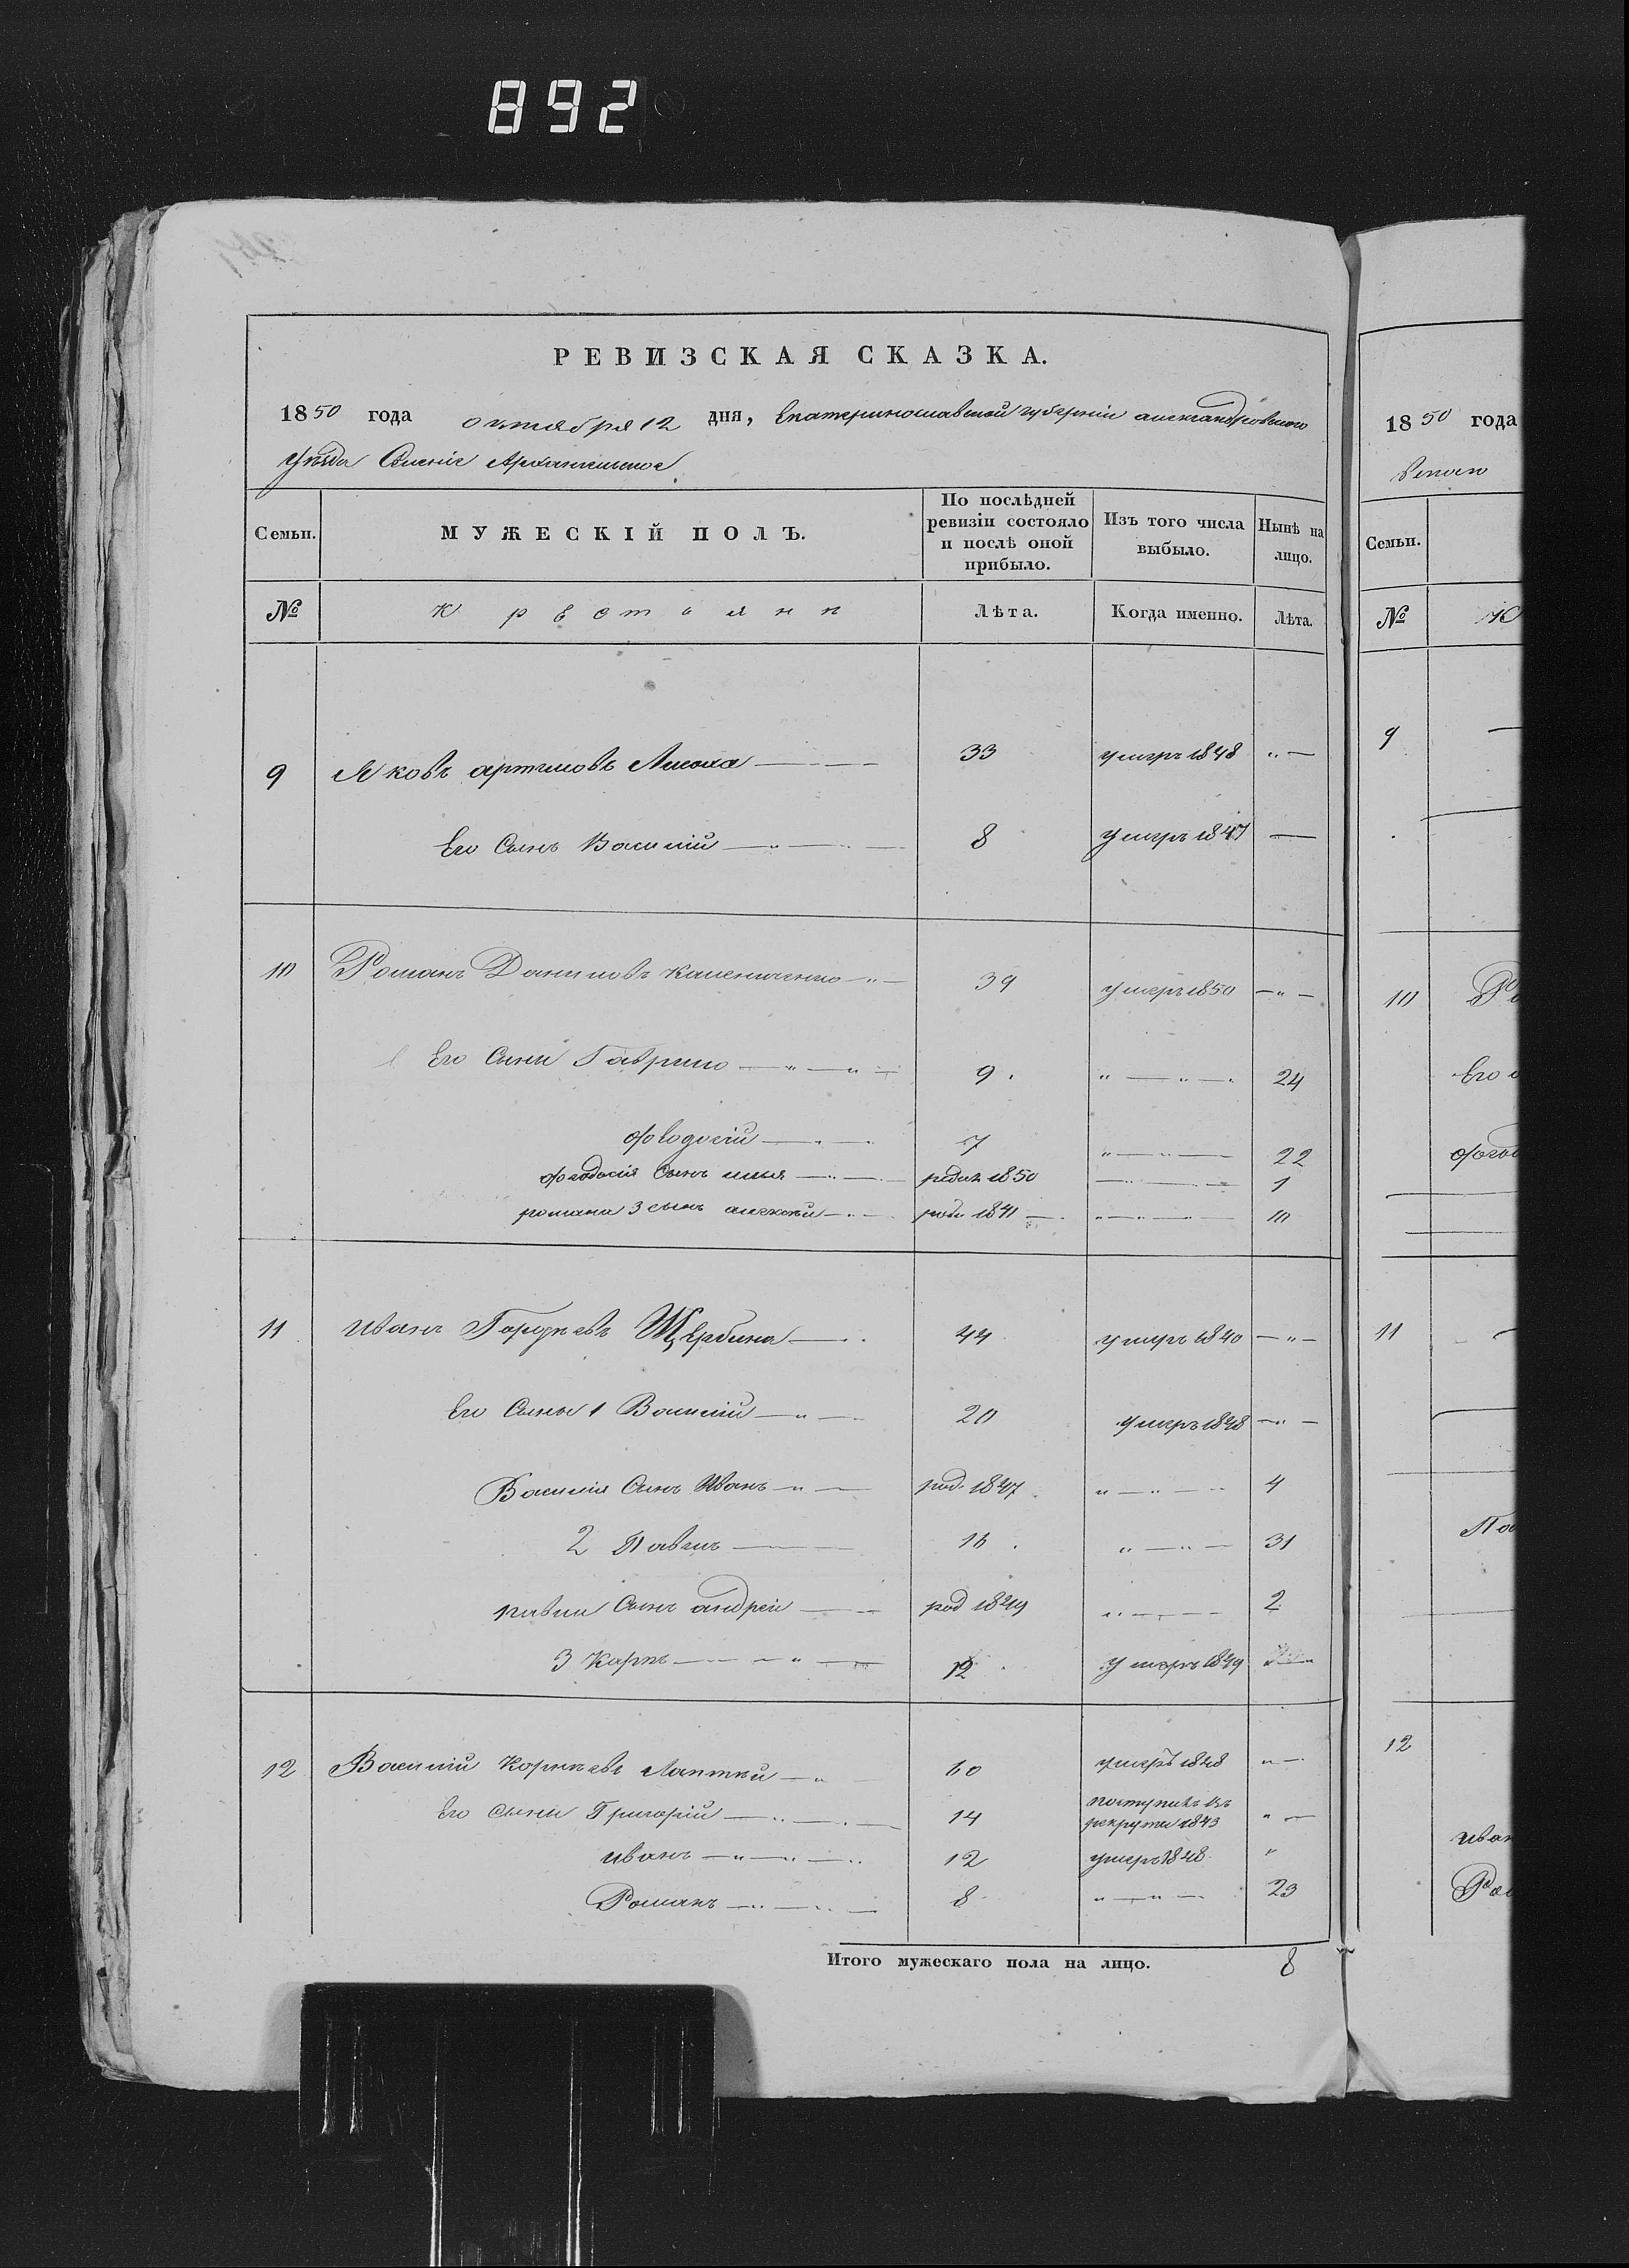 892
РЕВИЗСКАЯ СКАЗКА.
1850 года октября 12 дня, Екатеринославской губерніи александровского
уѣзда Селеніе Архангельское
Семьи.
МУЖЕСКІЙ ПОЛЪ.
По послѣдней ревизіи состояло и послѣ оной прибыло.
Изъ того числа выбыло.
Нынѣ на лицо.
№ Крестьянъ Лѣта. Когда именно. Лѣта.
9 Яковъ артемовъ 33 умеръ 1848
Его Сынъ Василій 8 умеръ 1847
10 Романъ Даниловъ 39 умеръ 1850
Его Сыны Гаврило 9 24
феодосій 7 22
феодосія Сынъ илья родил 1850 1
романа 3 сынъ алексѣй роди 1841 10
11 иванъ Гордѣевъ Щербина 44 умеръ 1840
Его Сыны 1 Василій 20 умеръ 1848
Василія Сынъ Иванъ род. 1847 4
2 Павелъ 16 31
павла Сынъ андрей род 1849 2
3 Карпъ 12 умеръ 1849
12 Василій Корнѣевъ 60 умеръ 1848
Его Сыны Григорій 14 поступилъ въ рекруты 1843
иванъ 12 умеръ 1848
Романъ 8 23
Итого мужескаго пола на лицо. 8
1850 года
Семьи.
№
9
10
Его
11
12